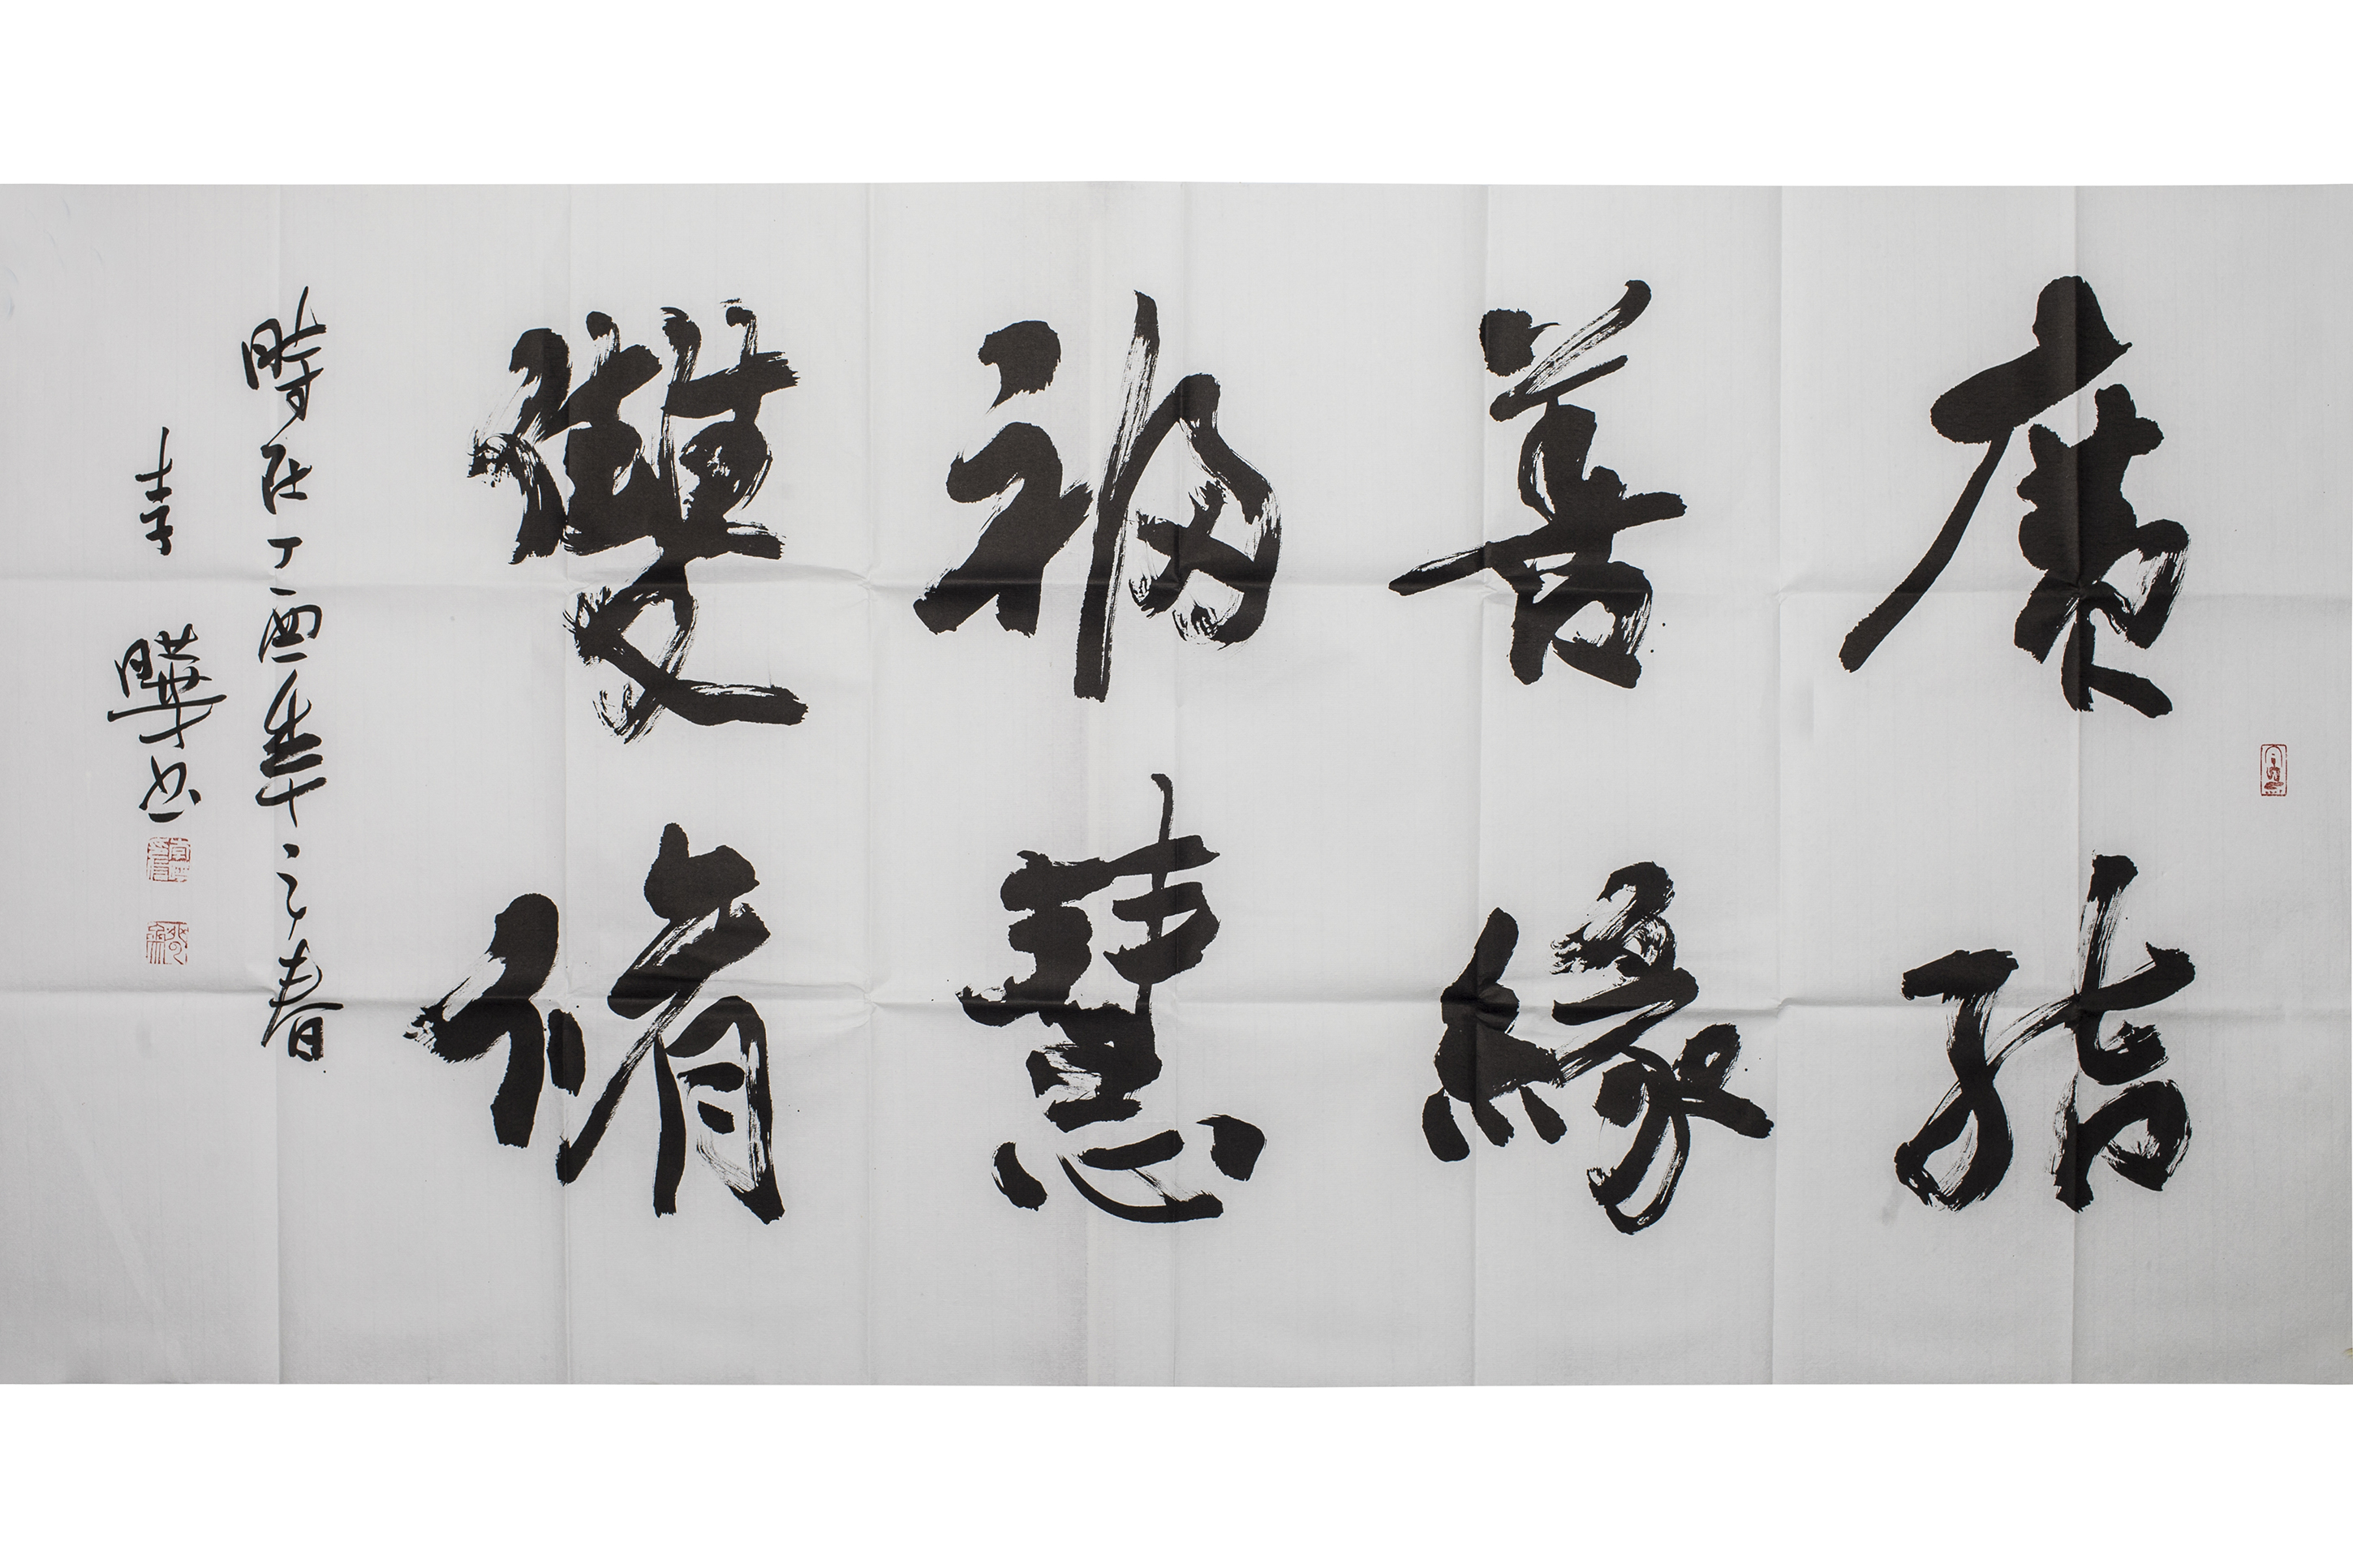 廣結
善緣
福慧
雙脩
時在丁酉年之春
書